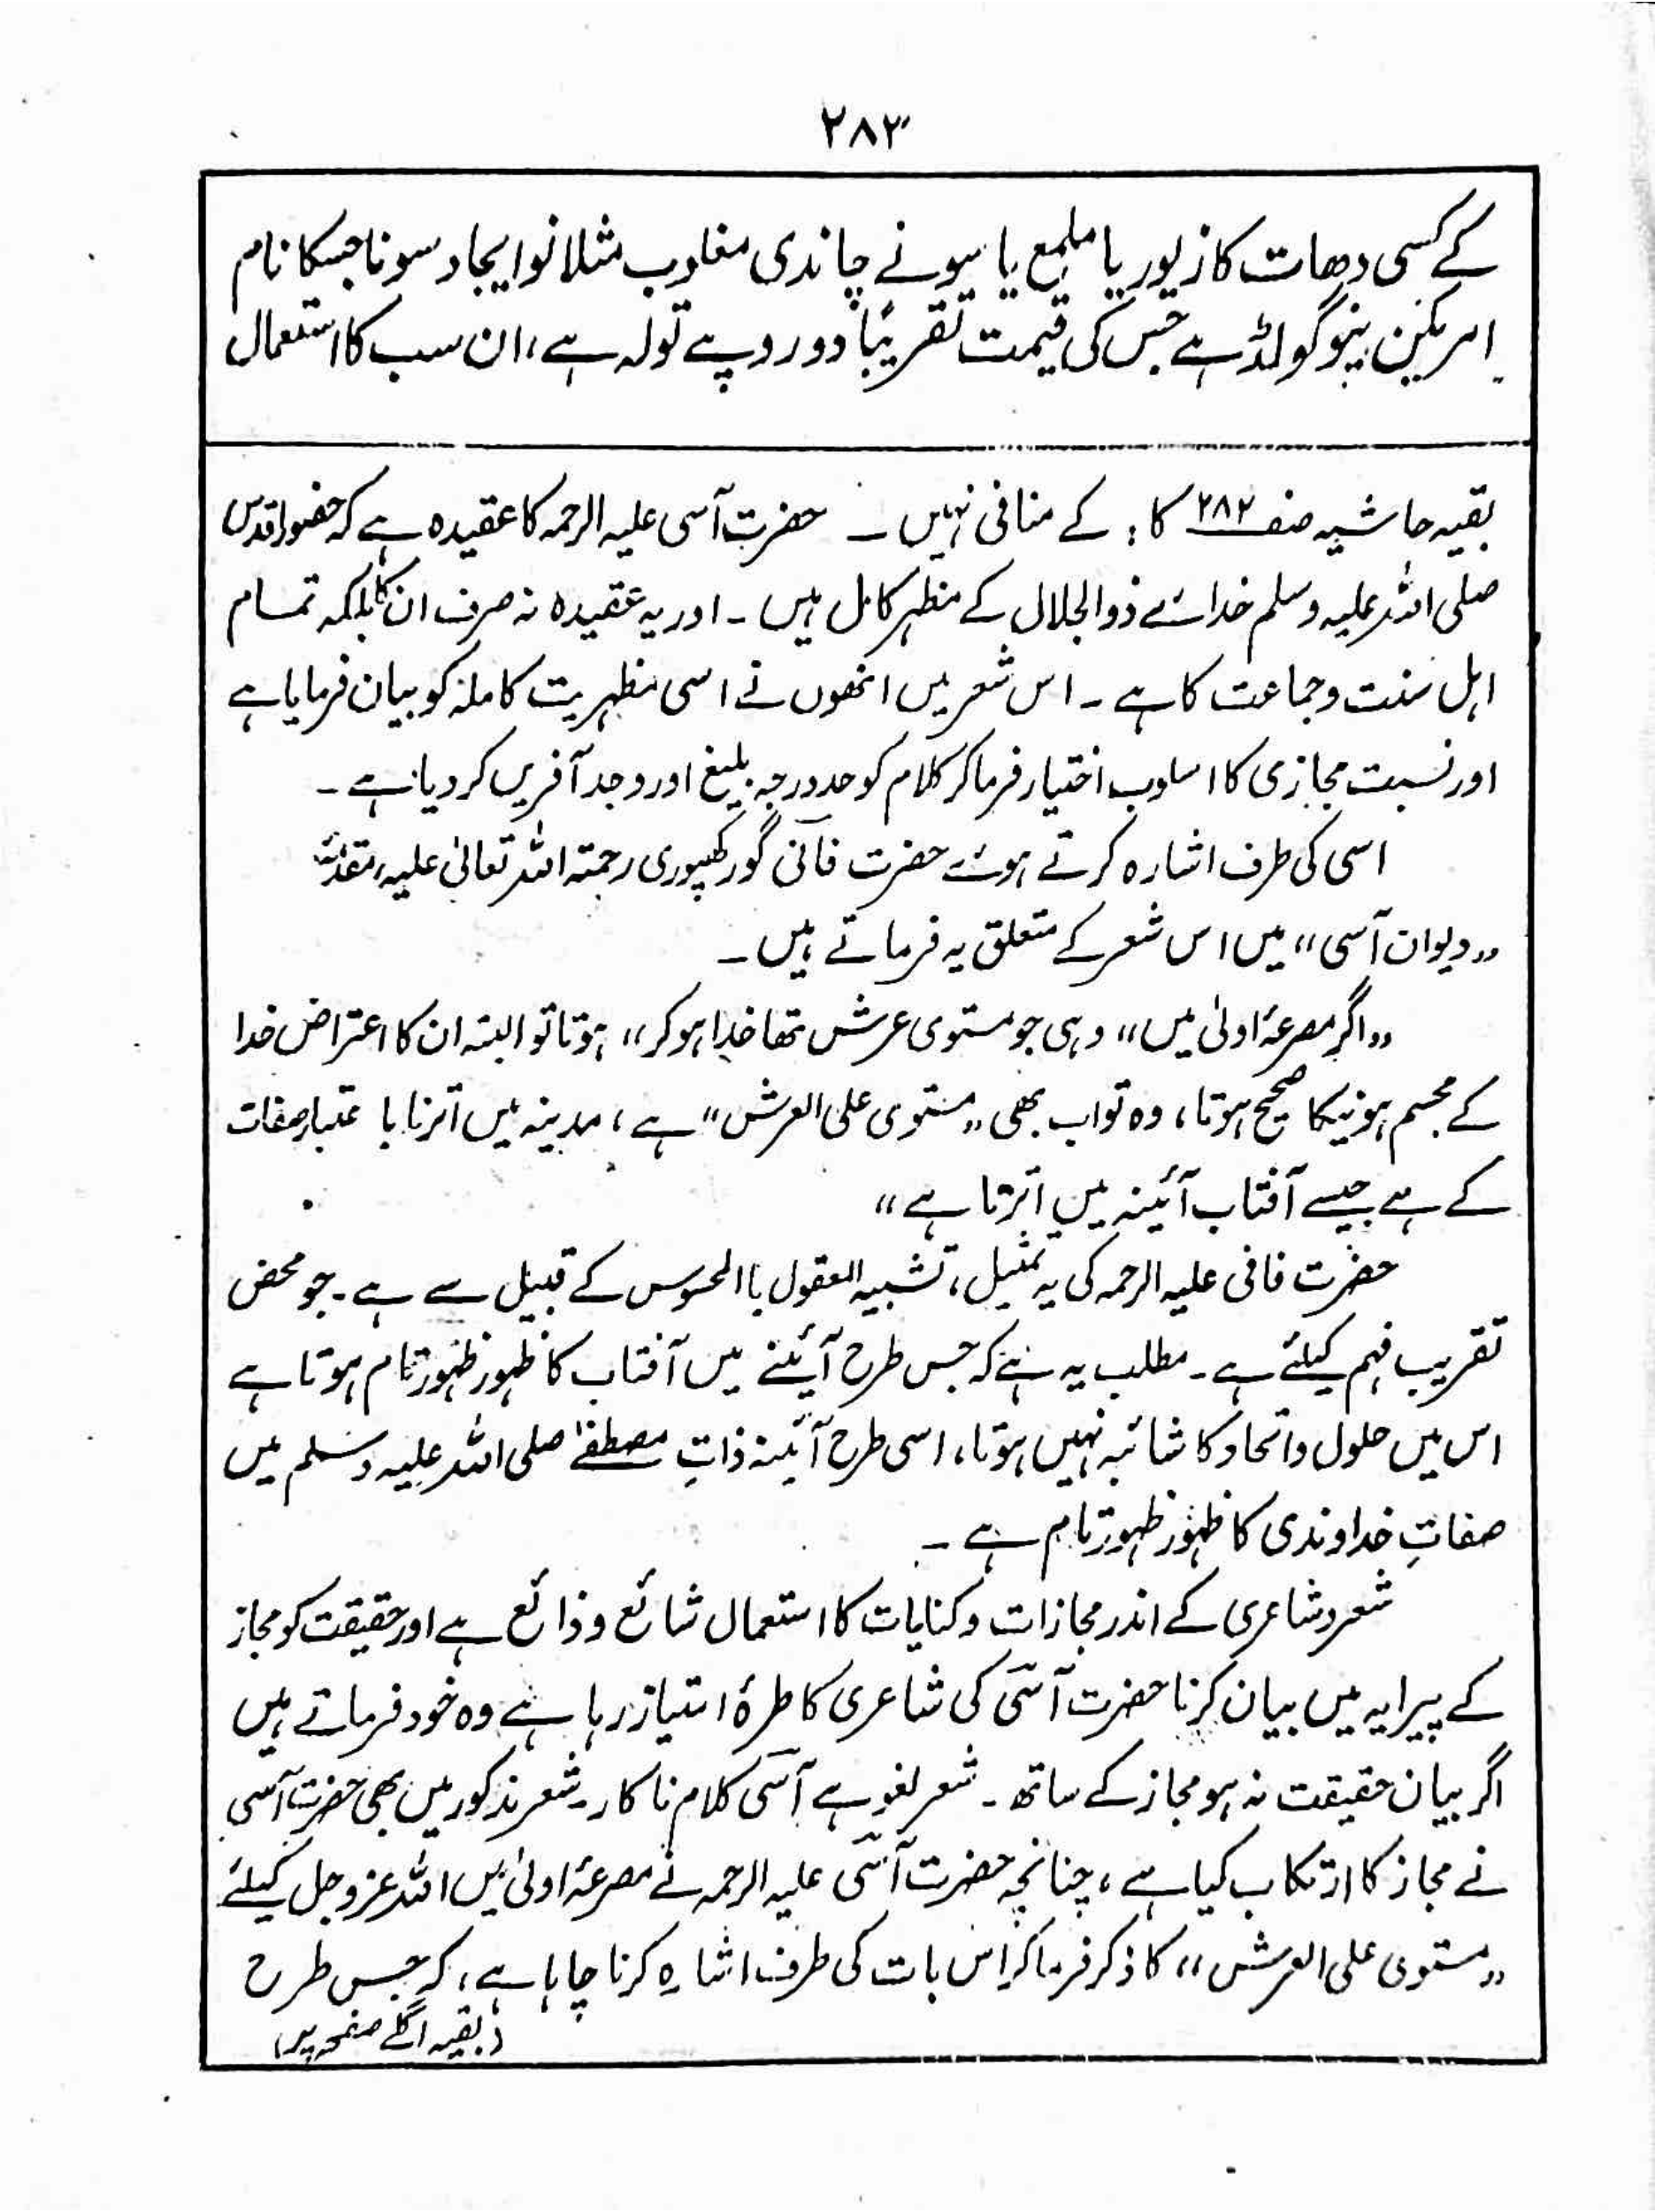 ۲۸۳
کے کسی دھات کا زیور یا ملمع یا سونے چاندی مغلوب مثلا نو ایجاد سونا جسکا نام
امریکن نیو گولڈ ہے جس کی قیمت تقریبًا دو روپے تولہ ہے، ان سب کا استعمال
بقیہ حاشیہ صفہ ۲۸۲ کا: کے منافی نہیں ۔ حضرت آسی علیہ الرحمہ کا عقیدہ ہے کہ حضور اقدس
صلی اللہ علیہ وسلم خدائے ذوالجلال کے مظہر کامل ہیں ۔ اور یہ عقیدہ نہ صرف ان کا بلکہ تمام
اہل سنت وجماعت کا ہے ۔ اس شعر میں انھوں نے اسی مظہریت کاملہ کو بیان فرمایا ہے
اور نسبت مجازی کا اسلوب اختیار فرما کر کلام کو حد درجہ بلیغ اور وجد آفریں کر دیا ہے ۔
اسی کی طرف اشارہ کرتے ہوئے حضرت فانی گورکھپوری رحمتہ اللہ تعالیٰ علیہ، مقدمہ
,,دیوان آسی،، میں اس شعر کے متعلق یہ فرماتے ہیں ۔
,,اگر مصرعۂ اولیٰ میں،، وہی جو مستوی عرش تھا خدا ہو کر،، ہوتا تو البتہ ان کا اعتراض خدا
کے مجسم ہونیکا صحیح ہوتا، وہ تو اب بھی ,,مستوی علی العرش،، ہے، مدینہ میں اترنا با عتبار صفات
کے ہے جیسے آفتاب آئینہ میں اترتا ہے،،
حضرت فانی علیہ الرحمہ کی یہ تمثیل، تشبیہ العقول با المحسوس کے قبیل سے ہے۔ جو محض
تقریب فہم کیلئے ہے ۔ مطلب یہ ہے کہ جس طرح آئینے میں آفتاب کا ظہور ظہور تام ہوتا ہے
اس میں حلول واتحاد کا شائبہ نہیں ہوتا، اسی طرح آئینہ ذاتِ مصطفےٰ صلی اللہ علیہ وسلم میں
صفاتِ خداوندی کا ظہور ظہور تام ہے ۔
شعر وشاعری کے اندر مجازات وکنایات کا استعمال شائع وذائع ہے اور حقیقت کو مجاز
کے پیرایہ میں بیان کرنا حضرت آسی کی شاعری کا طرۂ امتیاز رہا ہے وہ خود فرماتے ہیں
اگر بیان حقیقت نہ ہو مجاز کے ساتھ ۔ شعر لغو ہے آسی کلام ناکارہ شعر مذکور میں بھی حضرت آسی
نے مجاز کا ارتکاب کیا ہے، چنانچہ حضرت آسی علیہ الرحمہ نے مصرعۂ اولیٰ میں اللہ عزوجل کیلئے
,,مستوی علی العرش،، کا ذکر فرما کر اس بات کی طرف اشارہ کرنا چاہا ہے، کہ جس طرح
(بقیہ اگلے صفحہ پر)